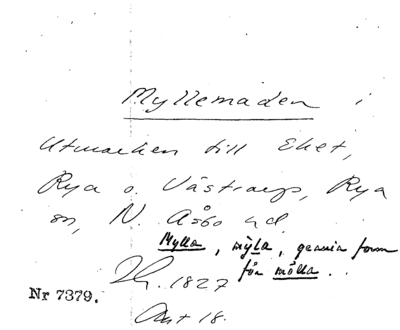 Myllemaden i
Utmarken till Eket,
Rya o. Västraup, Rya
sn, N. Åsbo hd.
Mylla, myla, gamla form
för mölla.
Nr 7379.
1827
Akt 18.